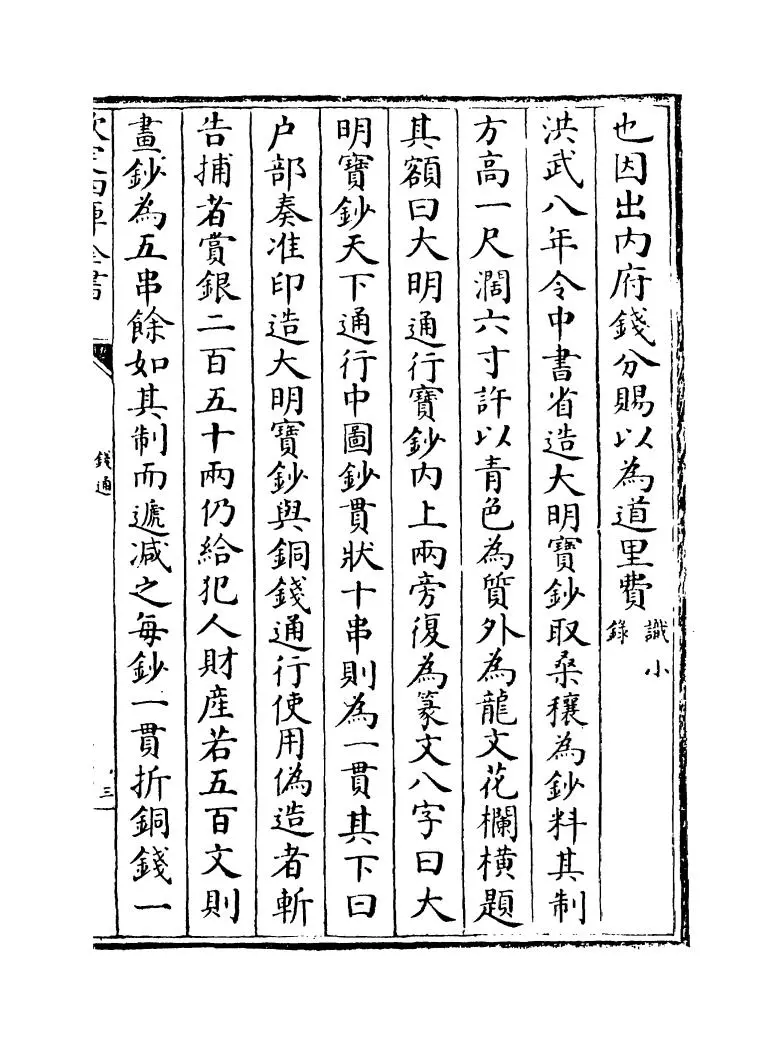 也因出内府錢分賜以為道里費識小錄
洪武八年令中書省造大明寶鈔取桑穰為鈔料其制
方高一尺濶六寸許以青色為質外為龍文花欄橫題
其額曰大明通行寶鈔内上兩旁復為篆文八字曰大
明寶鈔天下通行中圖鈔貫狀十串則為一貫其下曰
户部奏准印造大明寶鈔與銅錢通行使用偽造者斬
告捕者賞銀二百五十兩仍給犯人財産若五百文則
畫鈔為五串餘如其制而遞减之每鈔一貫折銅錢一
欽定四庫全書
錢通
三